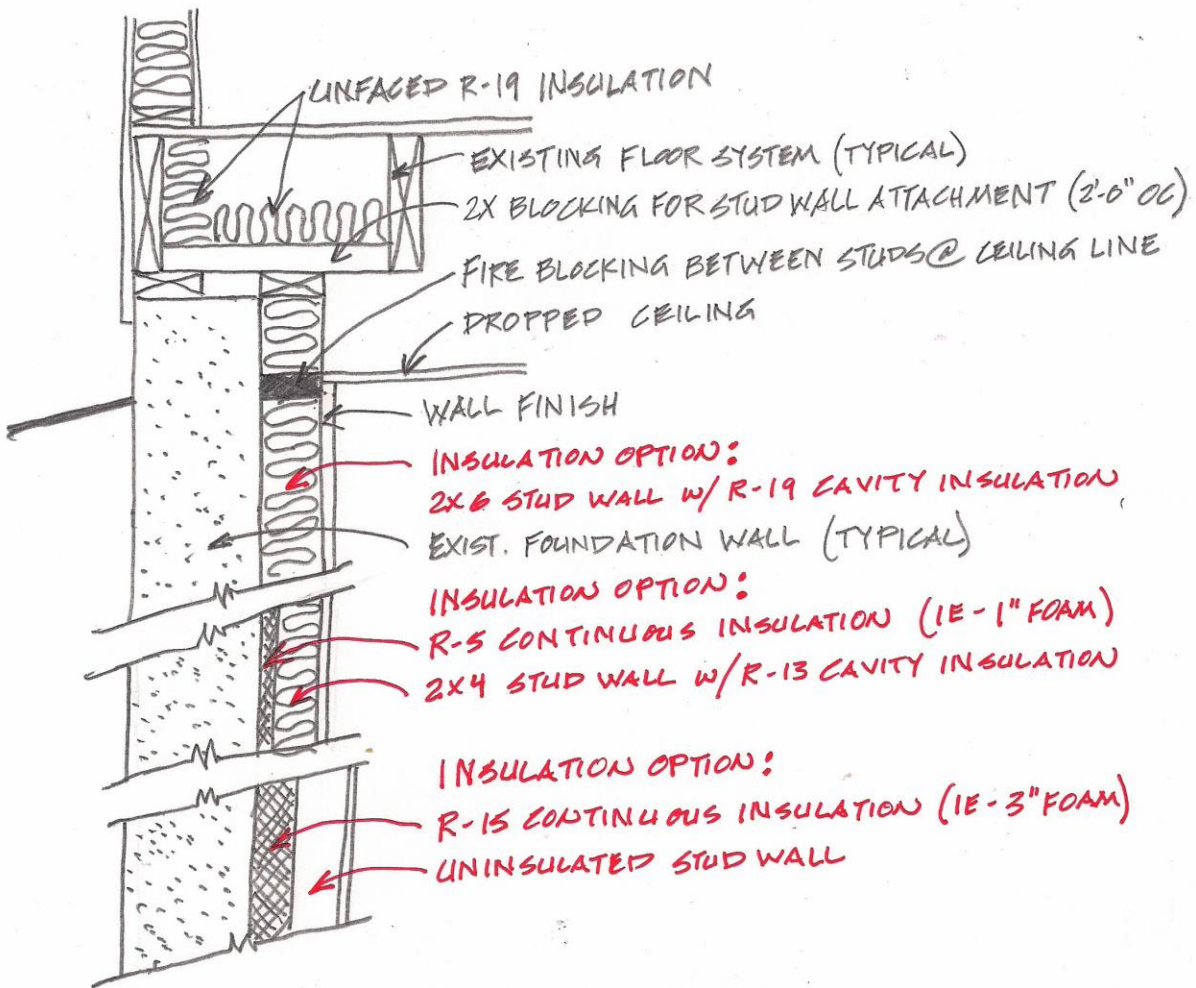 UNFACED R-19 INSULATION
EXISTING FLOOR SYSTEM (TYPICAL)
2X BLOCKING FOR STUD WALL ATTACHMENT (2'-0" OC)
FIRE BLOCKING BETWEEN STUDS @ CEILING LINE
DROPPED CEILING
WALL FINISH
INSULATION OPTION:
2X6 STUD WALL W/ R-19 CAVITY INSULATION
EXIST. FOUNDATION WALL (TYPICAL)
INSULATION OPTION:
R-5 CONTINUOUS INSULATION (IE - 1" FOAM)
2X4 STUD WALL W/ R-13 CAVITY INSULATION
INSULATION OPTION:
R-15 CONTINUOUS INSULATION (IE - 3" FOAM)
UNINSULATED STUD WALL